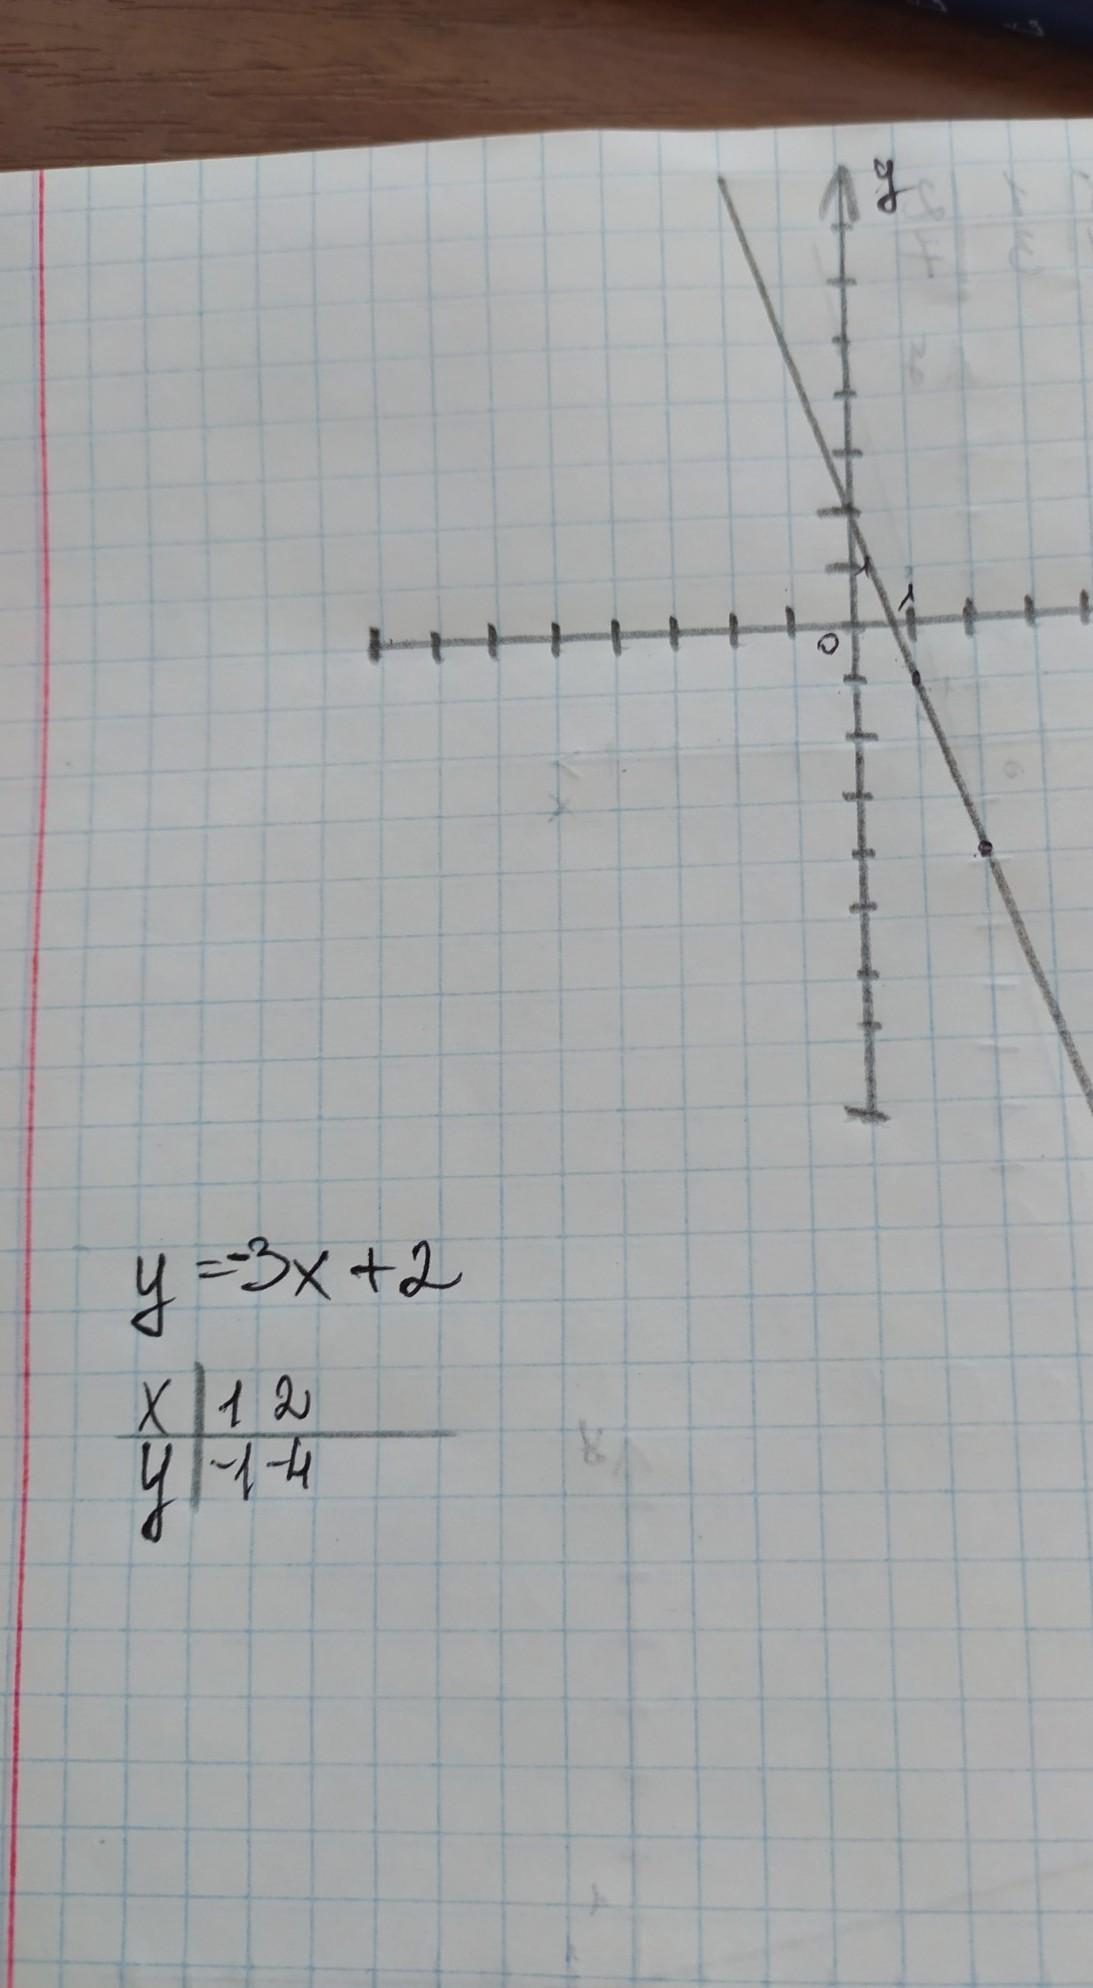 y
1
1
0
y = -3x + 2
x | 1 2
y | -1 -4